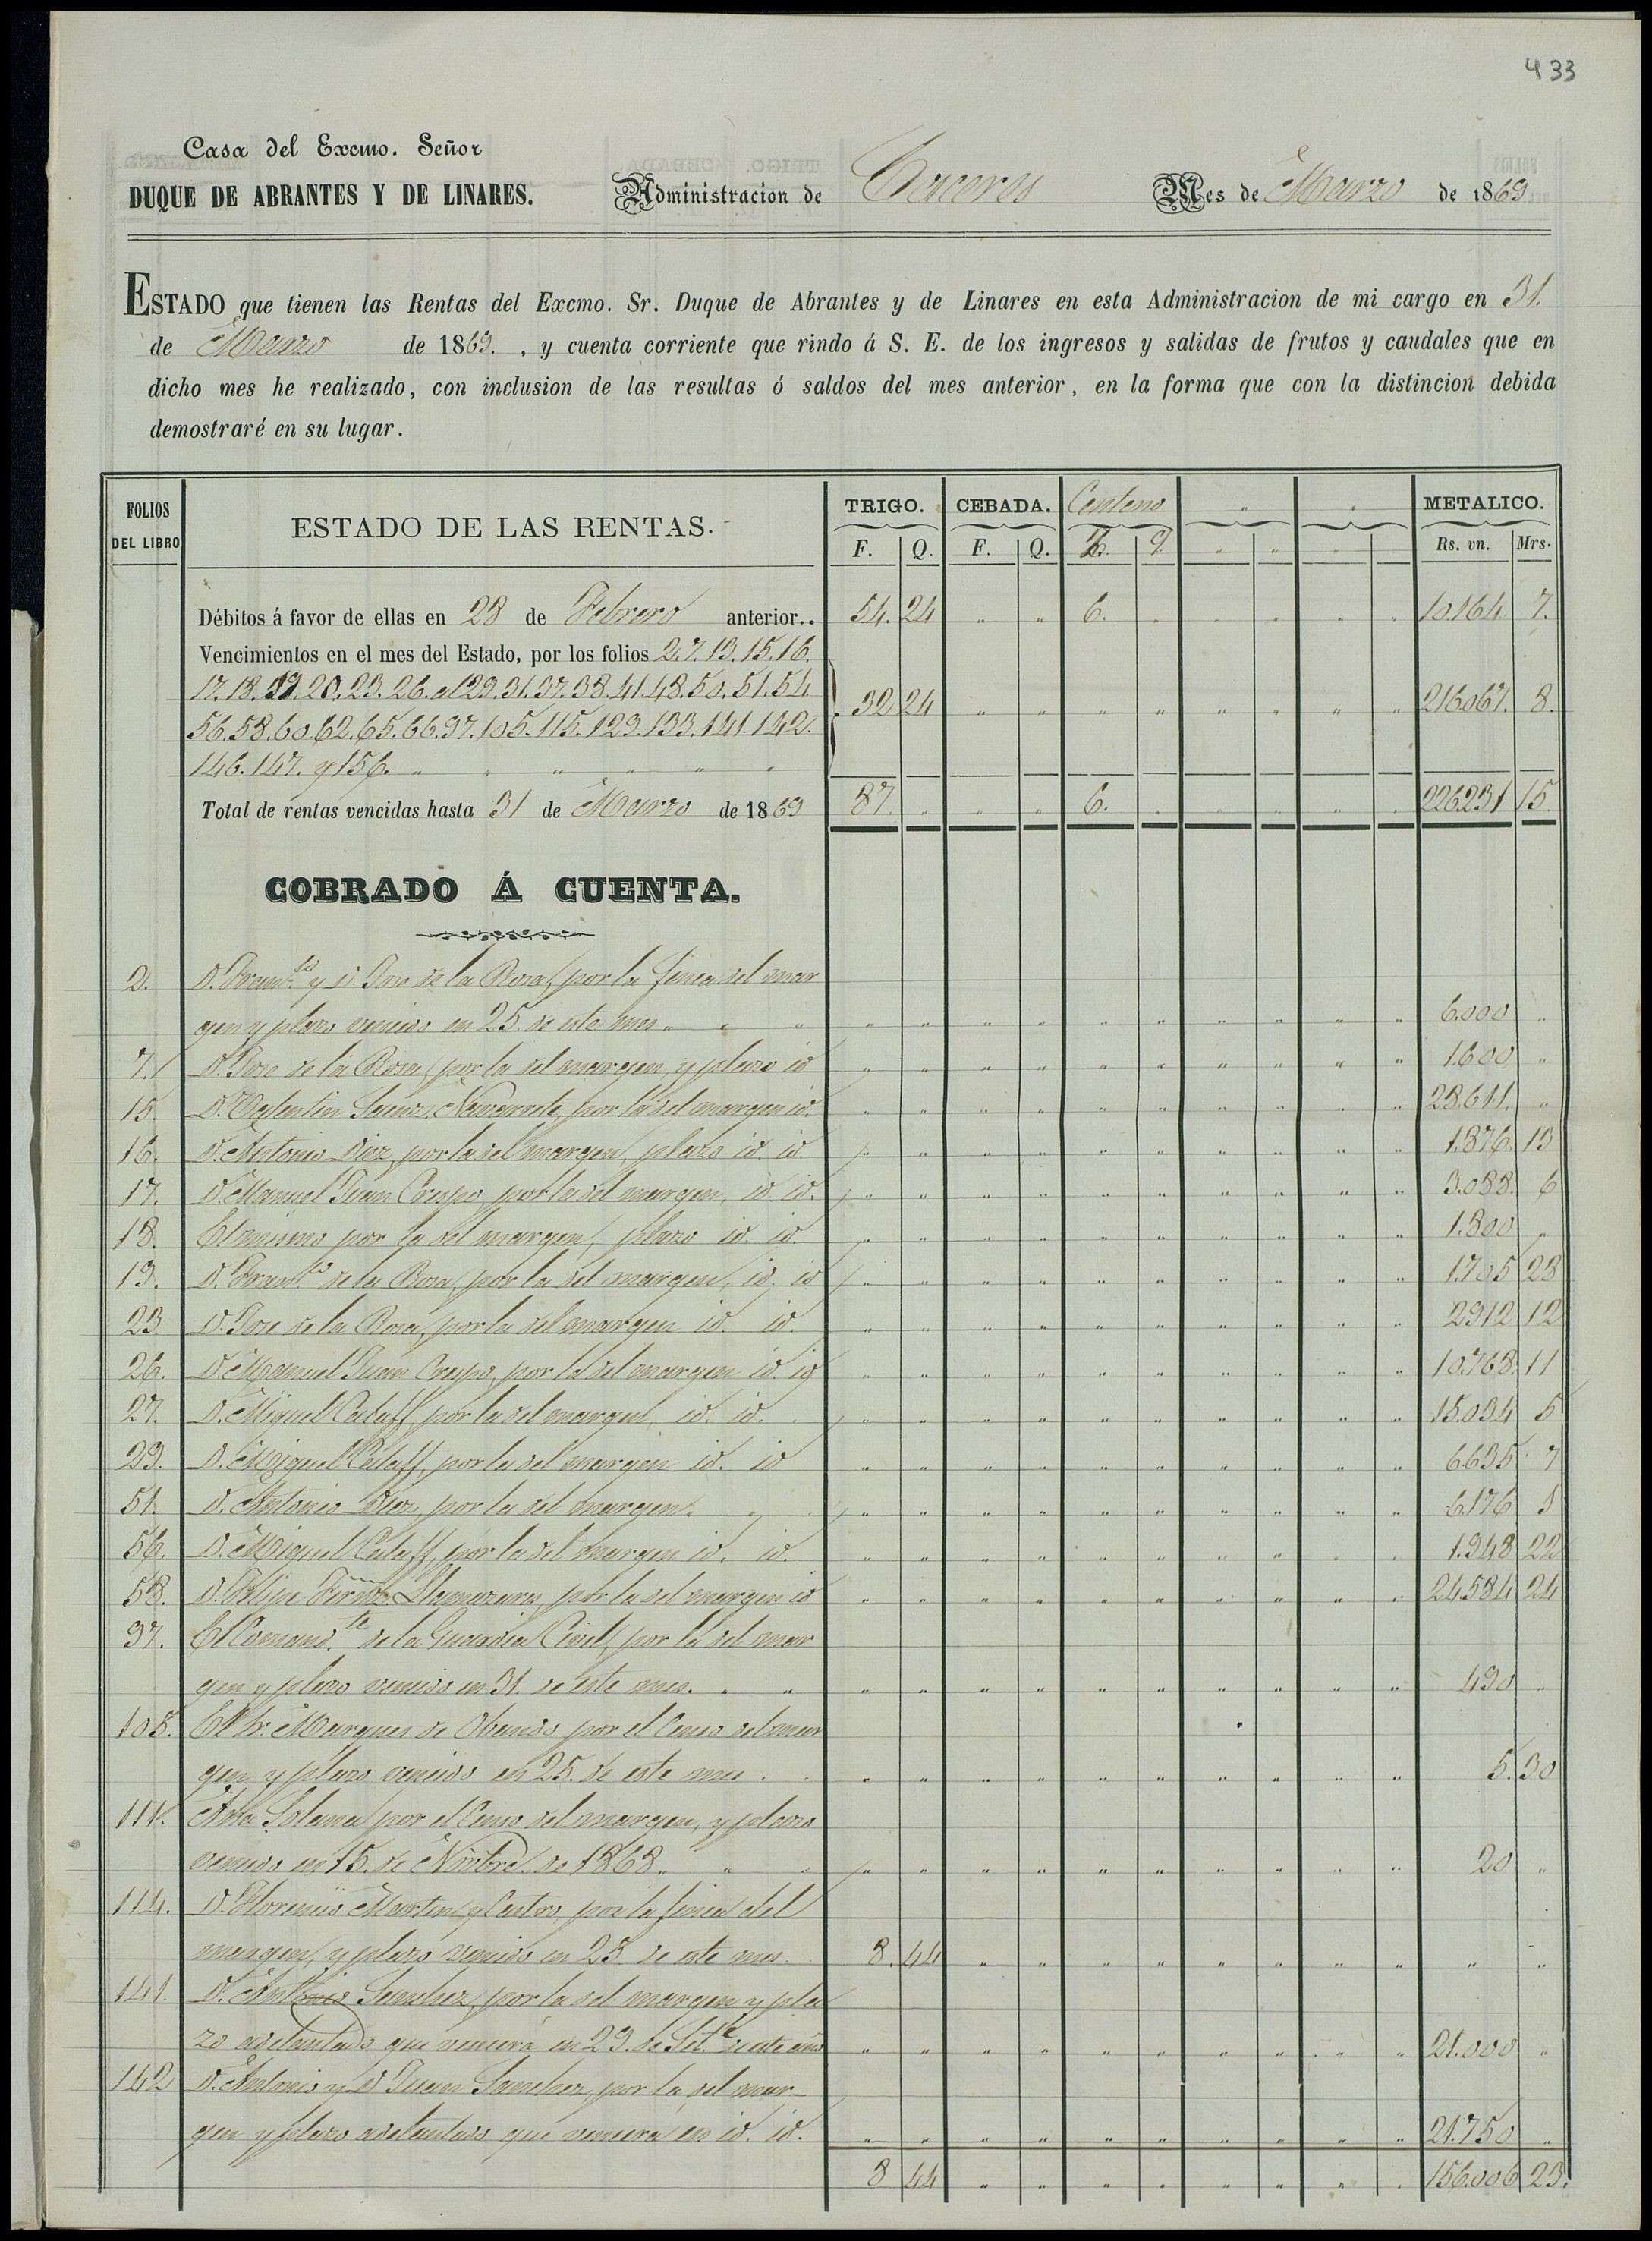 433
Casa del Excmo. Señor
DUQUE DE ABRANTES Y DE LINARES. Administracion de Caceres Mes de Marzo de 1869
ESTADO que tienen las Rentas del Excmo. Sr. Duque de Abrantes y de Linares en esta Administracion de mi cargo en 31.
de Marzo de 1869. , y cuenta corriente que rindo á S. E. de los ingresos y salidas de frutos y caudales que en
dicho mes he realizado, con inclusion de las resultas ó saldos del mes anterior, en la forma que con la distincion debida
demostraré en su lugar.
FOLIOS DEL LIBRO ESTADO DE LAS RENTAS. TRIGO. CEBADA. Centeno " " METALICO.
F. Q. F. Q. F. Q. " " " Rs. vn. Mrs.
Débitos á favor de ellas en 28 de Febrero anterior.. 54. 24 " " 6. " " " " " 10.164 7.
Vencimientos en el mes del Estado, por los folios 2.7.13.15.16.
17.18.19.20.23.26.al 29.31.37.38.41.48.50.51.54 32 24 " " " " " " " " 216.067. 8.
56.58.60.62.65.66.97.105.115.129.133.141.142.
146.147. y 156. " " " " " "
Total de rentas vencidas hasta 31 de Marzo de 1869 87. " " " 6. " " " " " 226.231 15.
COBRADO Á CUENTA.
2. D. Franco. y D. Jose de la Rosa, por la finca del mar
gen y plazo vencido en 25. de este mes " " " " " " " " " " " " " 6.000 "
7. D. Jose de la Rosa, por la del margen, y plazo id " " " " " " " " " " 1.600 "
15. D. Valentin Saenz Navarrete, por la del margen id. " " " " " " " " " " 28.611. "
16. D. Antonio Diaz, por la del margen, plazo id. id. " " " " " " " " " " 1.876. 13
17. D. Manuel Juan Crespo, por la del margen, id. id. " " " " " " " " " " 3.088. 6
18. El mismo por la del margen, plazo id. id. " " " " " " " " " " 1.800 "
19. D. Franco. de la Rosa, por la del margen, id. id " " " " " " " " " " 1.705 28
23 D. Jose de la Rosa, por la del margen id. id. " " " " " " " " " " 2912 12
26. D. Manuel Juan Crespo, por la del margen id. id " " " " " " " " " " 10.768. 11
27. D. Miguel Calaff, por la del margen, id. id. " " " " " " " " " " 15.034 5
29. D. Miguel Calaff, por la del margen id. id " " " " " " " " " " 6.635 7
51. D. Antonio Diaz, por la del margen. " " " " " " " " " " " 6.176 1
56. D. Miguel Calaff, por la del margen id. id. " " " " " " " " " " 1.948 22
58. D. Felipe Fernz. Llamazares, por la del margen id " " " " " " " " " " 24.584 24
97. El Comandte. de la Guardia Civil, por la del mar
gen y plazo vencido en 31. de este mes. " " " " " " " " " " " " 490 "
105. El Sr. Marques de Obando por el Censo del mar
gen y plazo vencido en 25. de este mes. " " " " " " " " " " 5. 30
111. Ana Solana por el Censo del margen, y plazo
vencido en 15. de Novbre. de 1868. " " " " " " " " " " " " 20 "
114. D. Florencio Martin y Castro, por la finca del
margen, y plazo vencido en 25 de este mes. 8. 44 " " " " " " " " " "
141. D. Antonio Sanchez, por la del margen y pla
zo adelantado que vencerá en 29. de Sete. de este año " " " " " " " " " " 21.000 "
142 D. Antonio y D. Juan Sanchez, por la del mar-
gen y plazo adelantado que vencera en id. id. " " " " " " " " " " 21.750 "
8 44 " " " " " " " " 156.006 23.